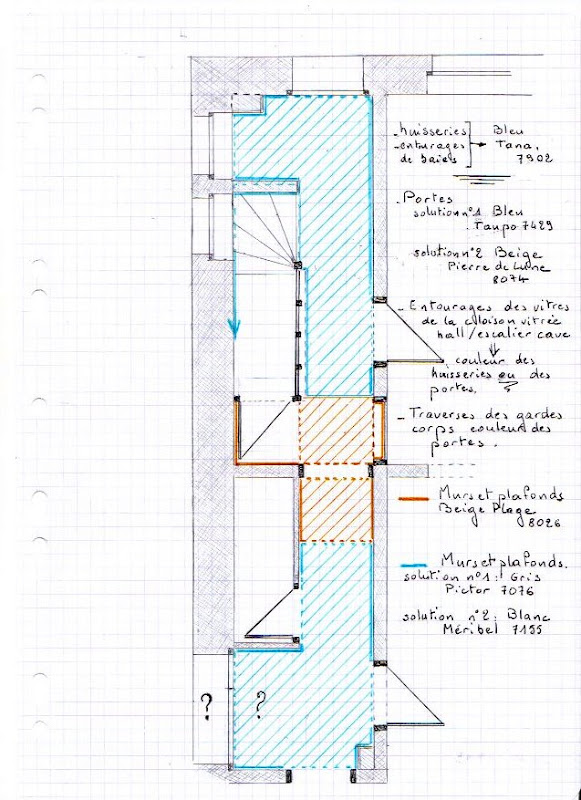 - huisseries
- entourages
de baies
Bleu
Tana.
7902
- Portes
solution n°1 Bleu
Taupo 7429
solution n°2 Beige
Pierre de Lune
8074
- Entourages des vitres
de la cloison vitrée
hall/escalier cave
couleur des
huisseries ou des
portes.
- Traverses des gardes
corps couleur des
portes.
Murs et plafonds
Beige Plage
8026
Murs et plafonds.
solution n°1: Gris
Pictor 7076
solution n°2: Blanc
Méribel 7155
?
?